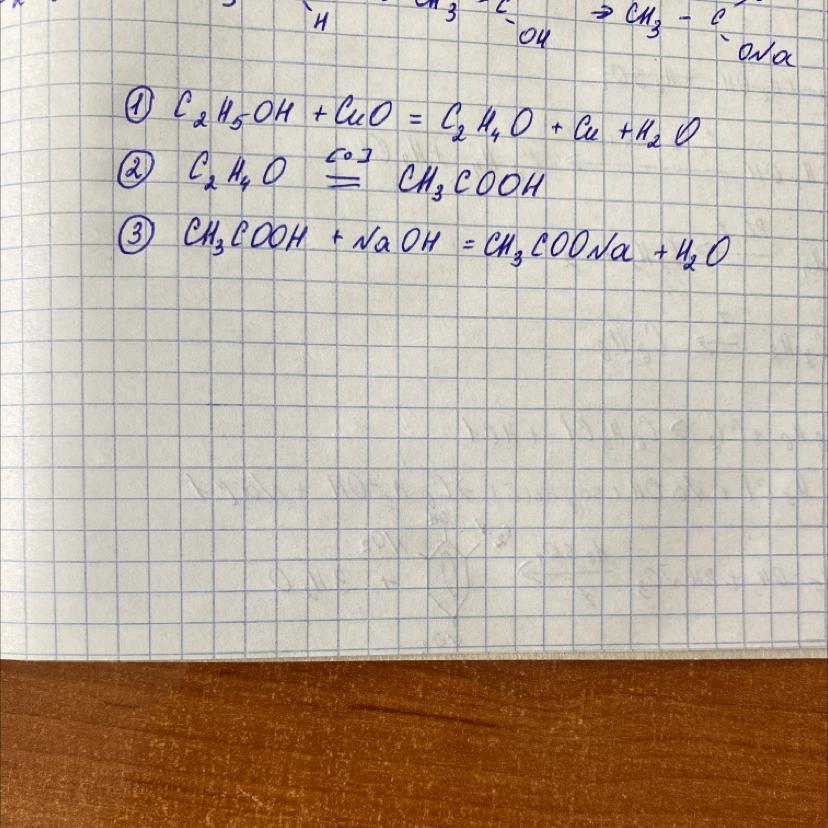 H CH₃ - C OH ⇒ CH₃ - C ONa
① C₂H₅OH + CuO = C₂H₄O + Cu + H₂O
② C₂H₄O [O] = CH₃COOH
③ CH₃COOH + NaOH = CH₃COONa + H₂O